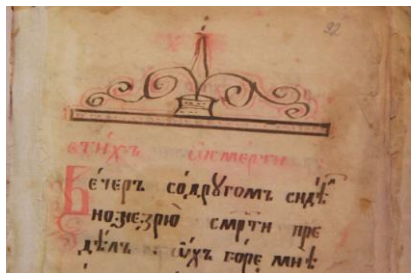 92
стихъ ѡ смерти
Вечеръ со другомъ сидѣ
но же зрю смрти пре
дѣлъ ѡхъ горе мнѣ